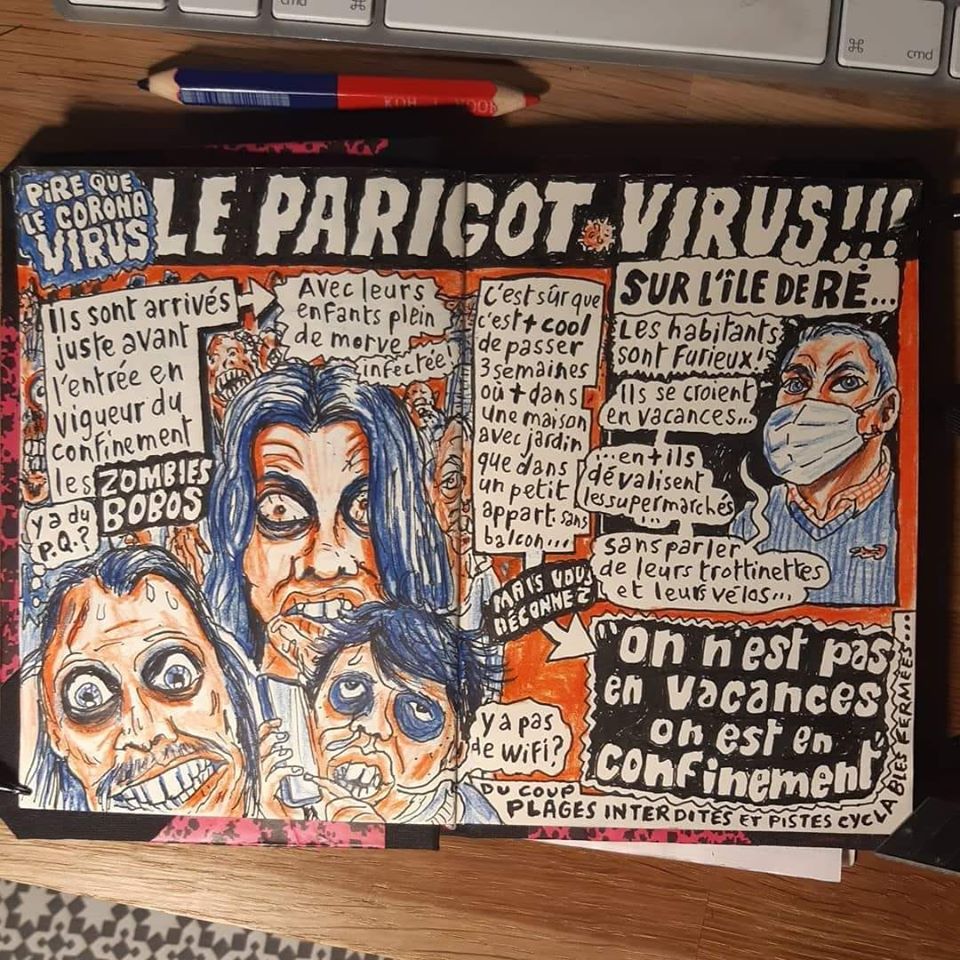 cmd ⌘
⌘
cmd
PIRE QUE
LE CORONA
VIRUS
LE PARIGOT VIRUS!!!
Ils sont arrivés
juste avant
l'entrée en
vigueur du
confinement
les ZOMBIES
BOBOS
Avec leurs
enfants plein
de morve
infectée!
y a du
P.Q.?
C'est sûr que
c'est + cool
de passer
3 semaines
où + dans
une maison
avec jardin
que dans
un petit
appart. sans
balcon...
MAIS VOUS
DÉCONNEZ
y a pas
de wifi?
SUR L'ÎLE DE RÉ...
Les habitants
sont furieux!
Ils se croient
en vacances...
...en + ils
dévalisent
les supermarchés
sans parler
de leurs trottinettes
et leurs vélos...
"on n'est pas
en vacances
on est en
confinement"
DU COUP
PLAGES INTERDITES ET PISTES CYCLABLES FERMÉES...